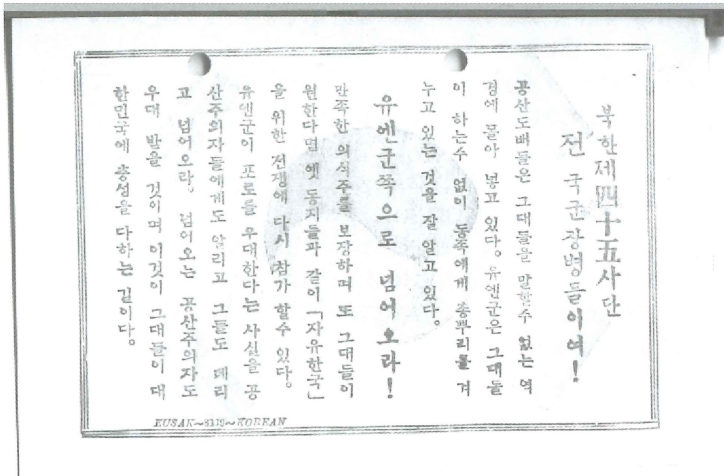 북한제四十五사단
전 국군장병들이여!
공산도배들은 그대들을 말할수 없는 역
경에 몰아 넣고 있다. 유엔군은 그대들
이 하는수 없이 동족에게 총뿌리를 겨
누고 있는 것을 잘 알고 있다.
유엔군쪽으로 넘어오라!
만족한 의식주를 보장하며 또 그대들이
원한다면 옛 동지들과 같이 「자유한국」
을 위한 전쟁에 다시 참가 할수 있다.
유엔군이 포로를 우대한다는 사실을 공
산주의자들에게도 알리고 그들도 데리
고 넘어오라. 넘어오는 공산주의자도
우대 받을 것이며 이것이 그대들이 대
한민국에 충성을 다하는 길이다.
EUSAK~8112~KOREAN